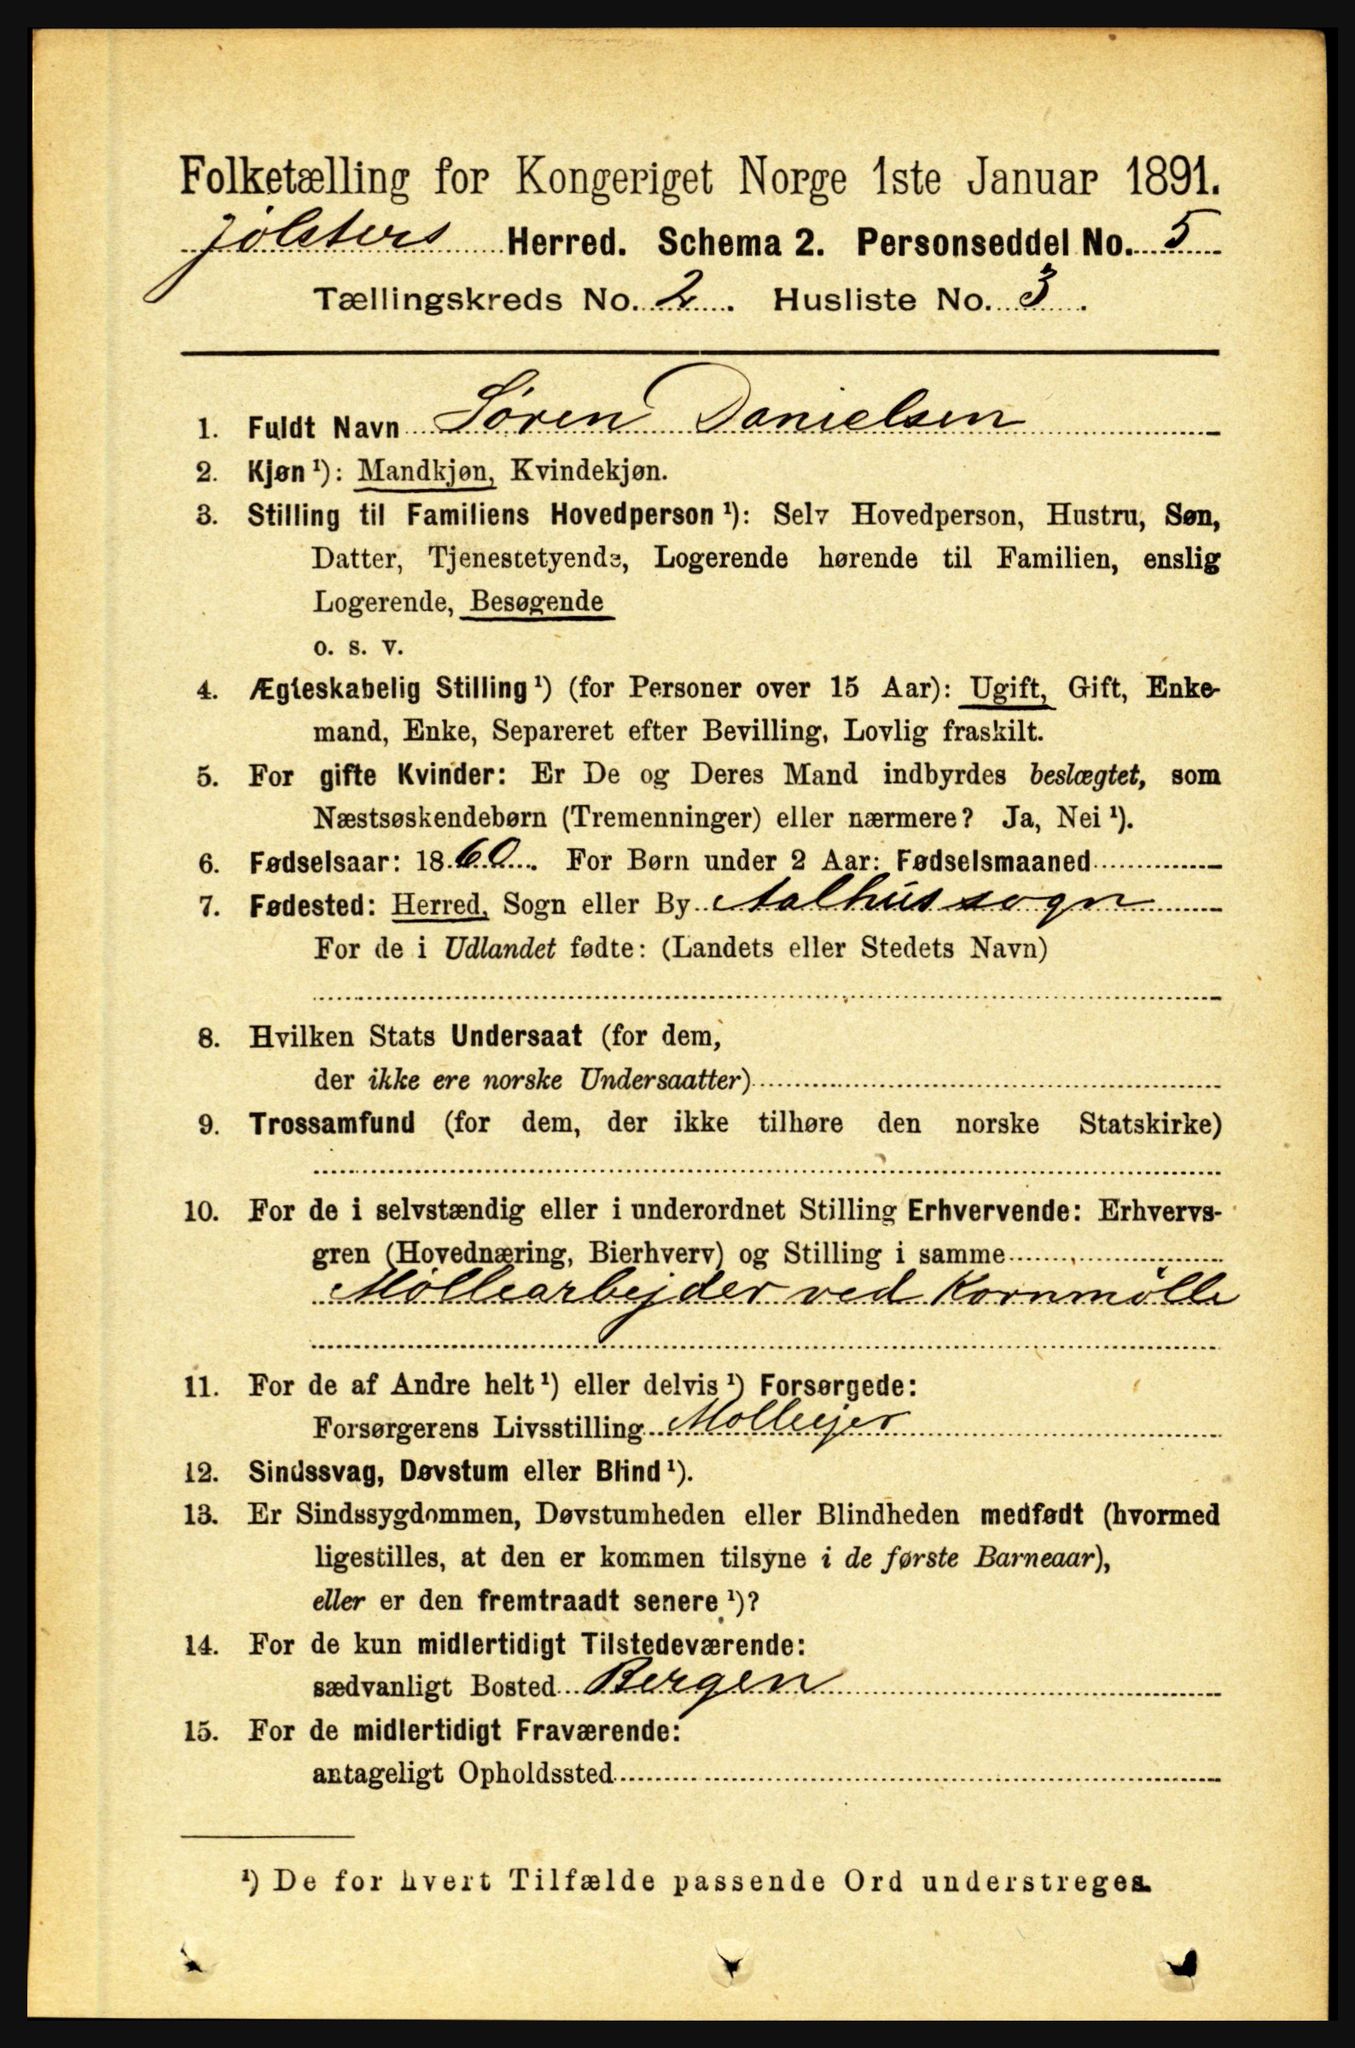 Folketælling for Kongeriget Norge 1ste Januar 1891.
Jølsters Herred. Schema 2. Personseddel No. 5
Tællingskreds No. 2. Husliste No. 3.
1. Fuldt Navn Søren Danielsen
2. Kjøn ¹): Mandkjøn, Kvindekjøn.
3. Stilling til Familiens Hovedperson ¹): Selv Hovedperson, Hustru, Søn,
Datter, Tjenestetyende, Logerende hørende til Familien, enslig
Logerende, Besøgende
o. s. v.
4. Ægteskabelig Stilling ¹) (for Personer over 15 Aar): Ugift, Gift, Enke-
mand, Enke, Separeret efter Bevilling, Lovlig fraskilt.
5. For gifte Kvinder: Er De og Deres Mand indbyrdes beslægtet, som
Næstsøskendebørn (Tremenninger) eller nærmere? Ja, Nei ¹).
6. Fødselsaar: 1860. For Børn under 2 Aar: Fødselsmaaned
7. Fødested: Herred, Sogn eller By Aalhus sogn
For de i Udlandet fødte: (Landets eller Stedets Navn)
8. Hvilken Stats Undersaat (for dem,
der ikke ere norske Undersaatter)
9. Trossamfund (for dem, der ikke tilhøre den norske Statskirke)
10. For de i selvstændig eller i underordnet Stilling Erhvervende: Erhvervs-
gren (Hovednæring, Bierhverv) og Stilling i samme
Møllearbejder ved Kornmølle
11. For de af Andre helt ¹) eller delvis ¹) Forsørgede:
Forsørgerens Livsstilling Mølleejer
12. Sindssvag, Døvstum eller Blind ¹).
13. Er Sindssygdommen, Døvstumheden eller Blindheden medfødt (hvormed
ligestilles, at den er kommen tilsyne i de første Barneaar),
eller er den fremtraadt senere ¹)?
14. For de kun midlertidigt Tilstedeværende:
sædvanligt Bosted Bergen
15. For de midlertidigt Fraværende:
antageligt Opholdssted
¹) De for hvert Tilfælde passende Ord understreges.